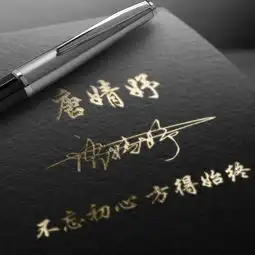 唐婧妤
不忘初心 方得始终